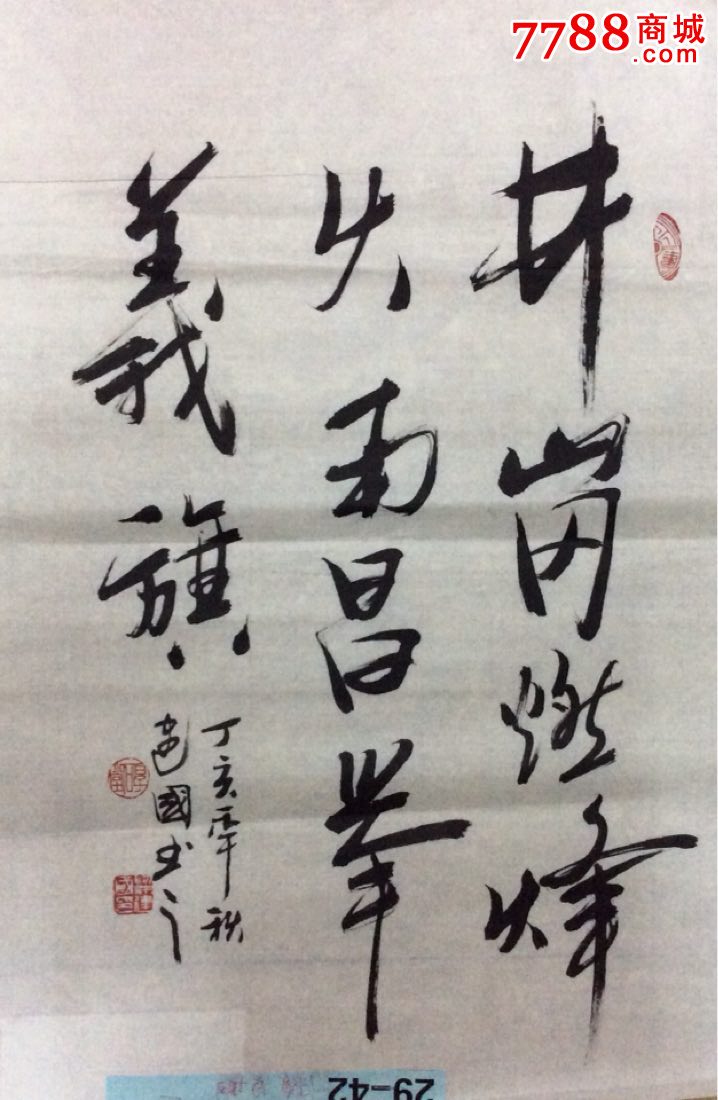 7788商城
.com
井岗燃烽
火南昌舉
義旗
丁亥年秋
國书之
29-42